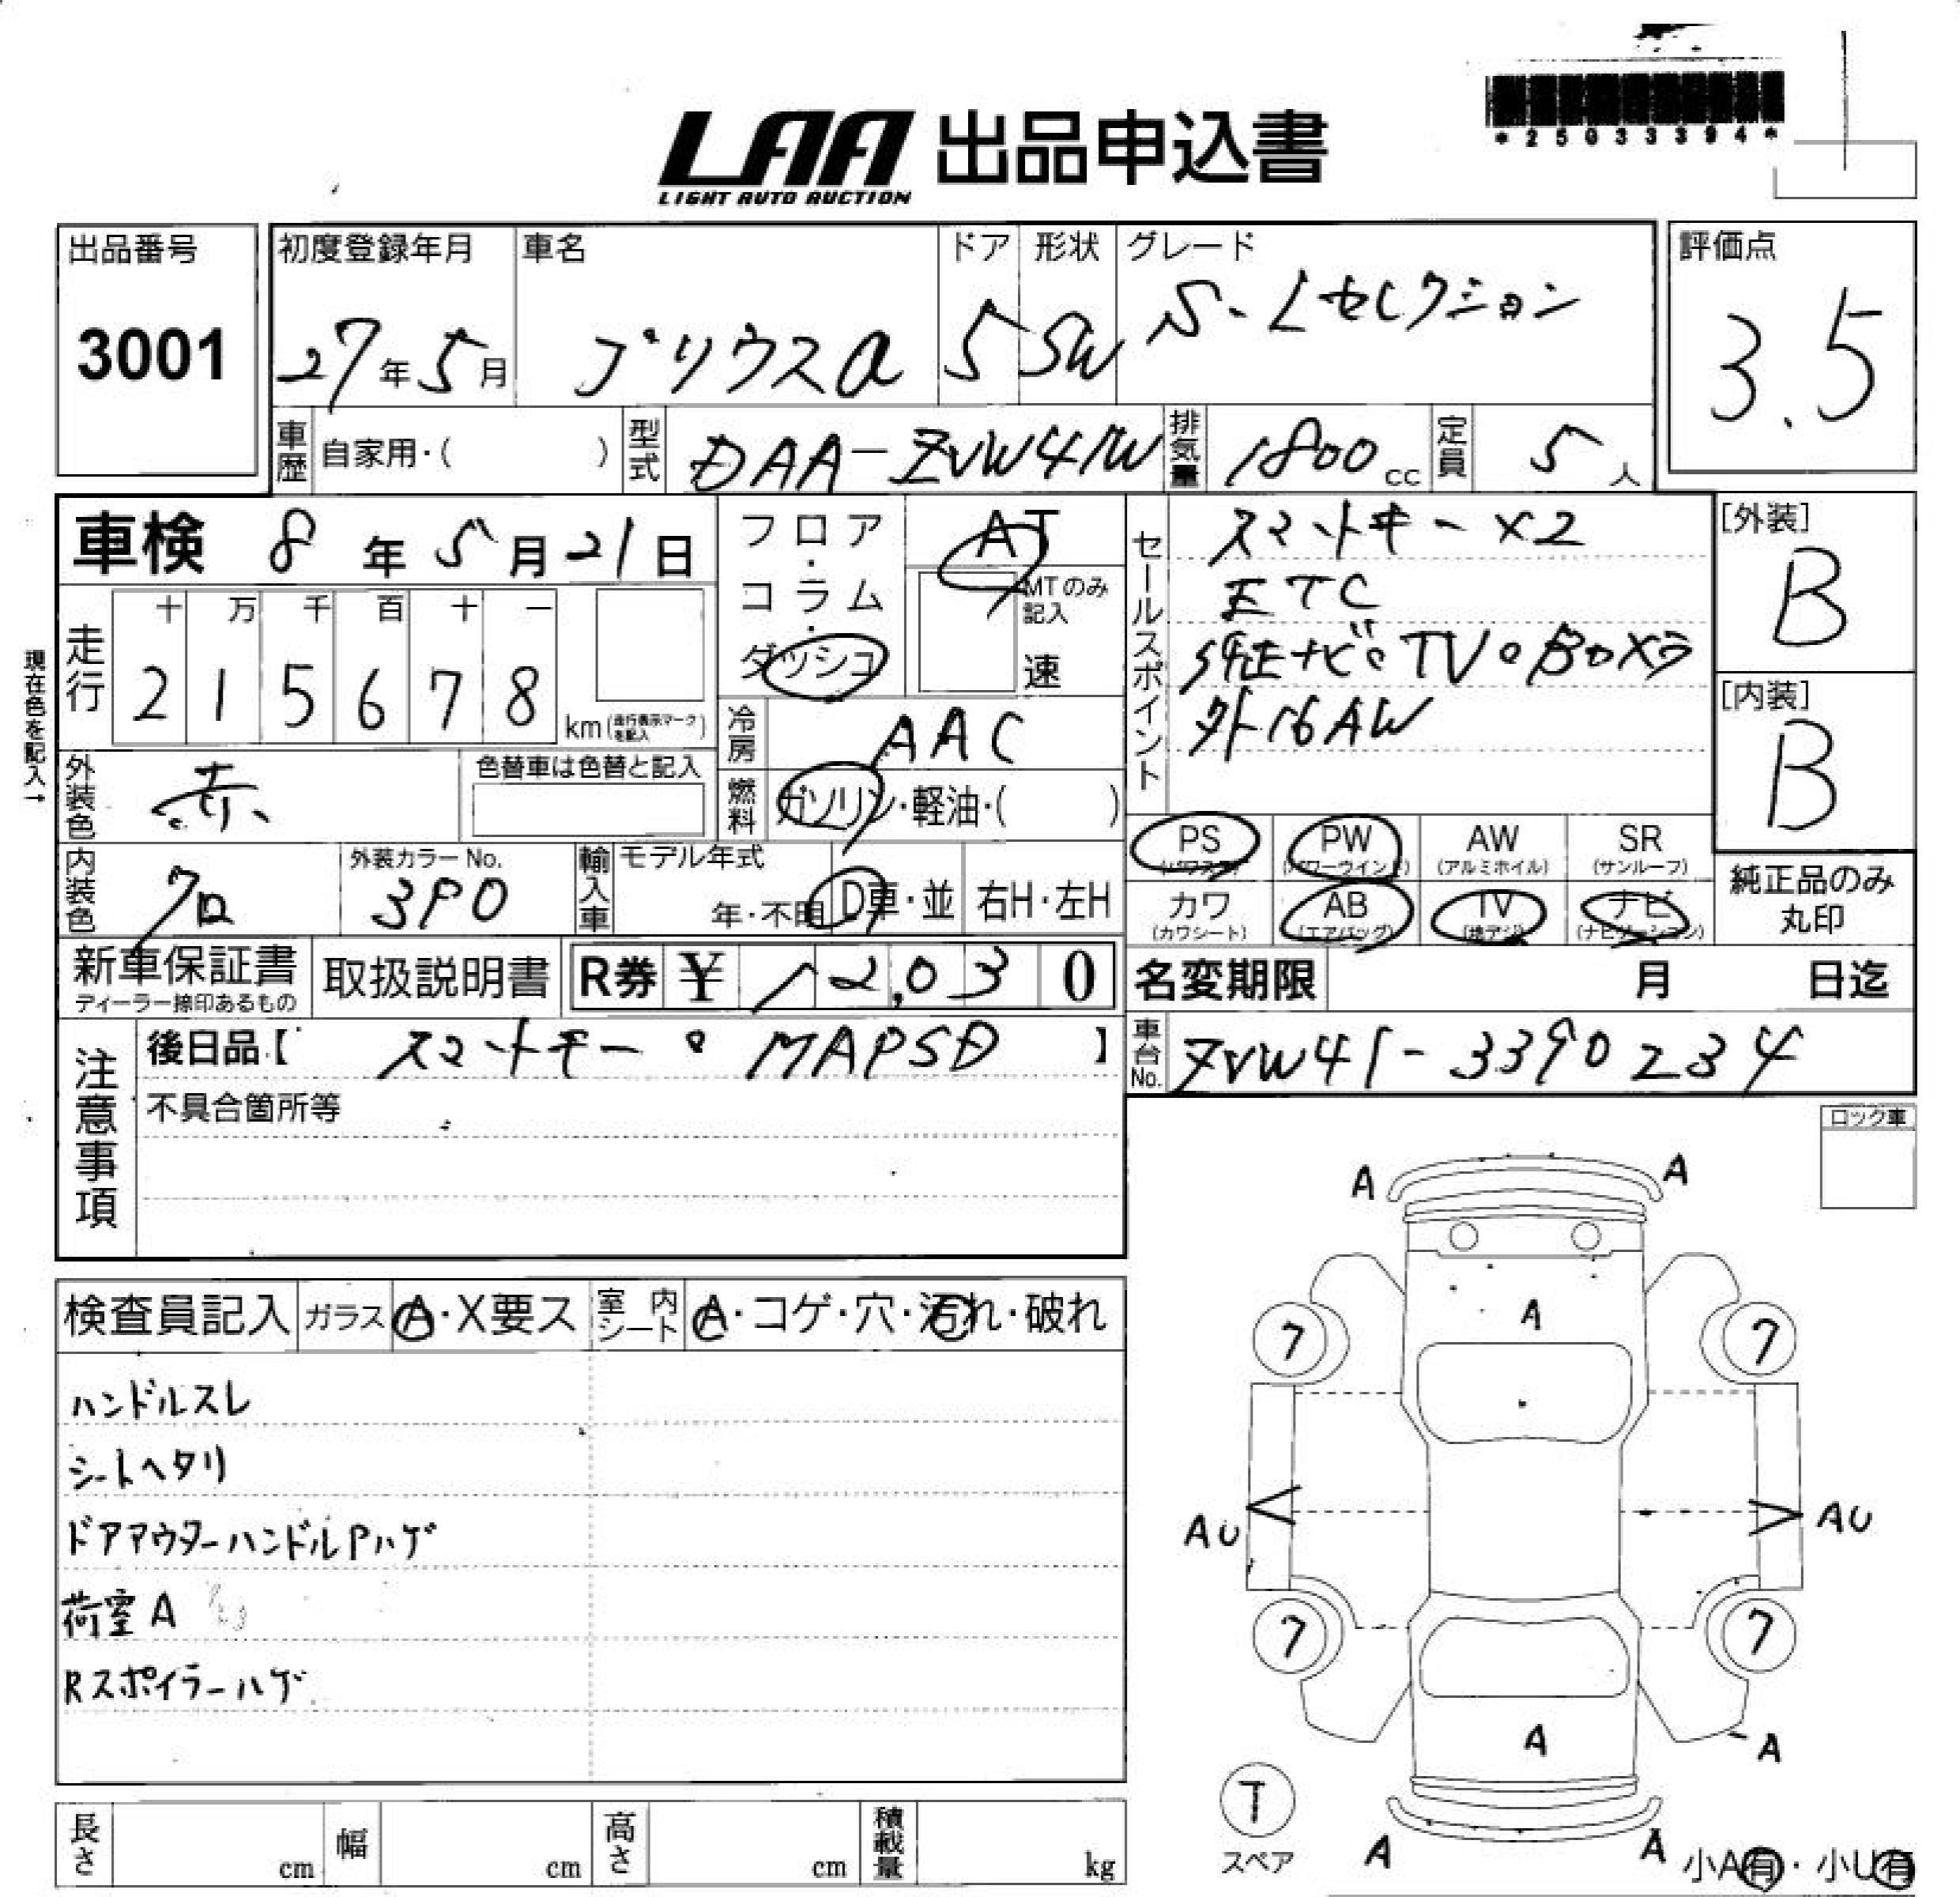 *25033394*
LAA 出品申込書
LIGHT AUTO AUCTION
出品番号 3001
初度登録年月 27年5月
車名 プリウスα
ドア 5
形状 SW
グレード S-Lセレクション
評価点 3.5
車歴 自家用・( )
型式 DAA-ZVW41W
排気量 1800cc
定員 5人
車検 8年5月21日
フロア・コラム・ダッシュ
AT
MTのみ記入
速
セールスポイント
スマートキー×2
ETC
純正ナビ。TV。Bカメラ
外16AW
[外装] B
[内装] B
現在色を記入→
走行
十 万 千 百 十 一
2 1 5 6 7 8 km(走行表示マークを記入)
冷房 AAC
外装色 赤
色替車は色替と記入
燃料 ガソリン・軽油・( )
内装色 クロ
外装カラーNo. 3P0
輸入車
モデル年式
年・不明
D車・並
右H・左H
PS (パワステ)
PW (パワーウインド)
AW (アルミホイル)
SR (サンルーフ)
カワ (カワシート)
AB (エアバッグ)
TV (地デジ)
ナビ (ナビゲーション)
純正品のみ
丸印
新車保証書
ディーラー捺印あるもの
取扱説明書
R券 ¥ 12,030
名変期限 月 日迄
注意事項
後日品【 スマートキー。MAPSD 】
車台No. ZVW41-3390234
不具合箇所等
ロック車
検査員記入
ガラス A・X要ス
室内シート A・コゲ・穴・汚れ・破れ
ハンドルスレ
シートヘタリ
ドアアウターハンドルPハゲ
荷室A
Rスポイラーハゲ
A A
A
7 7
AU AU
7 7
A
A
T
スペア
A A
小A有・小U有
長さ cm
幅 cm
高さ cm
積載量 kg